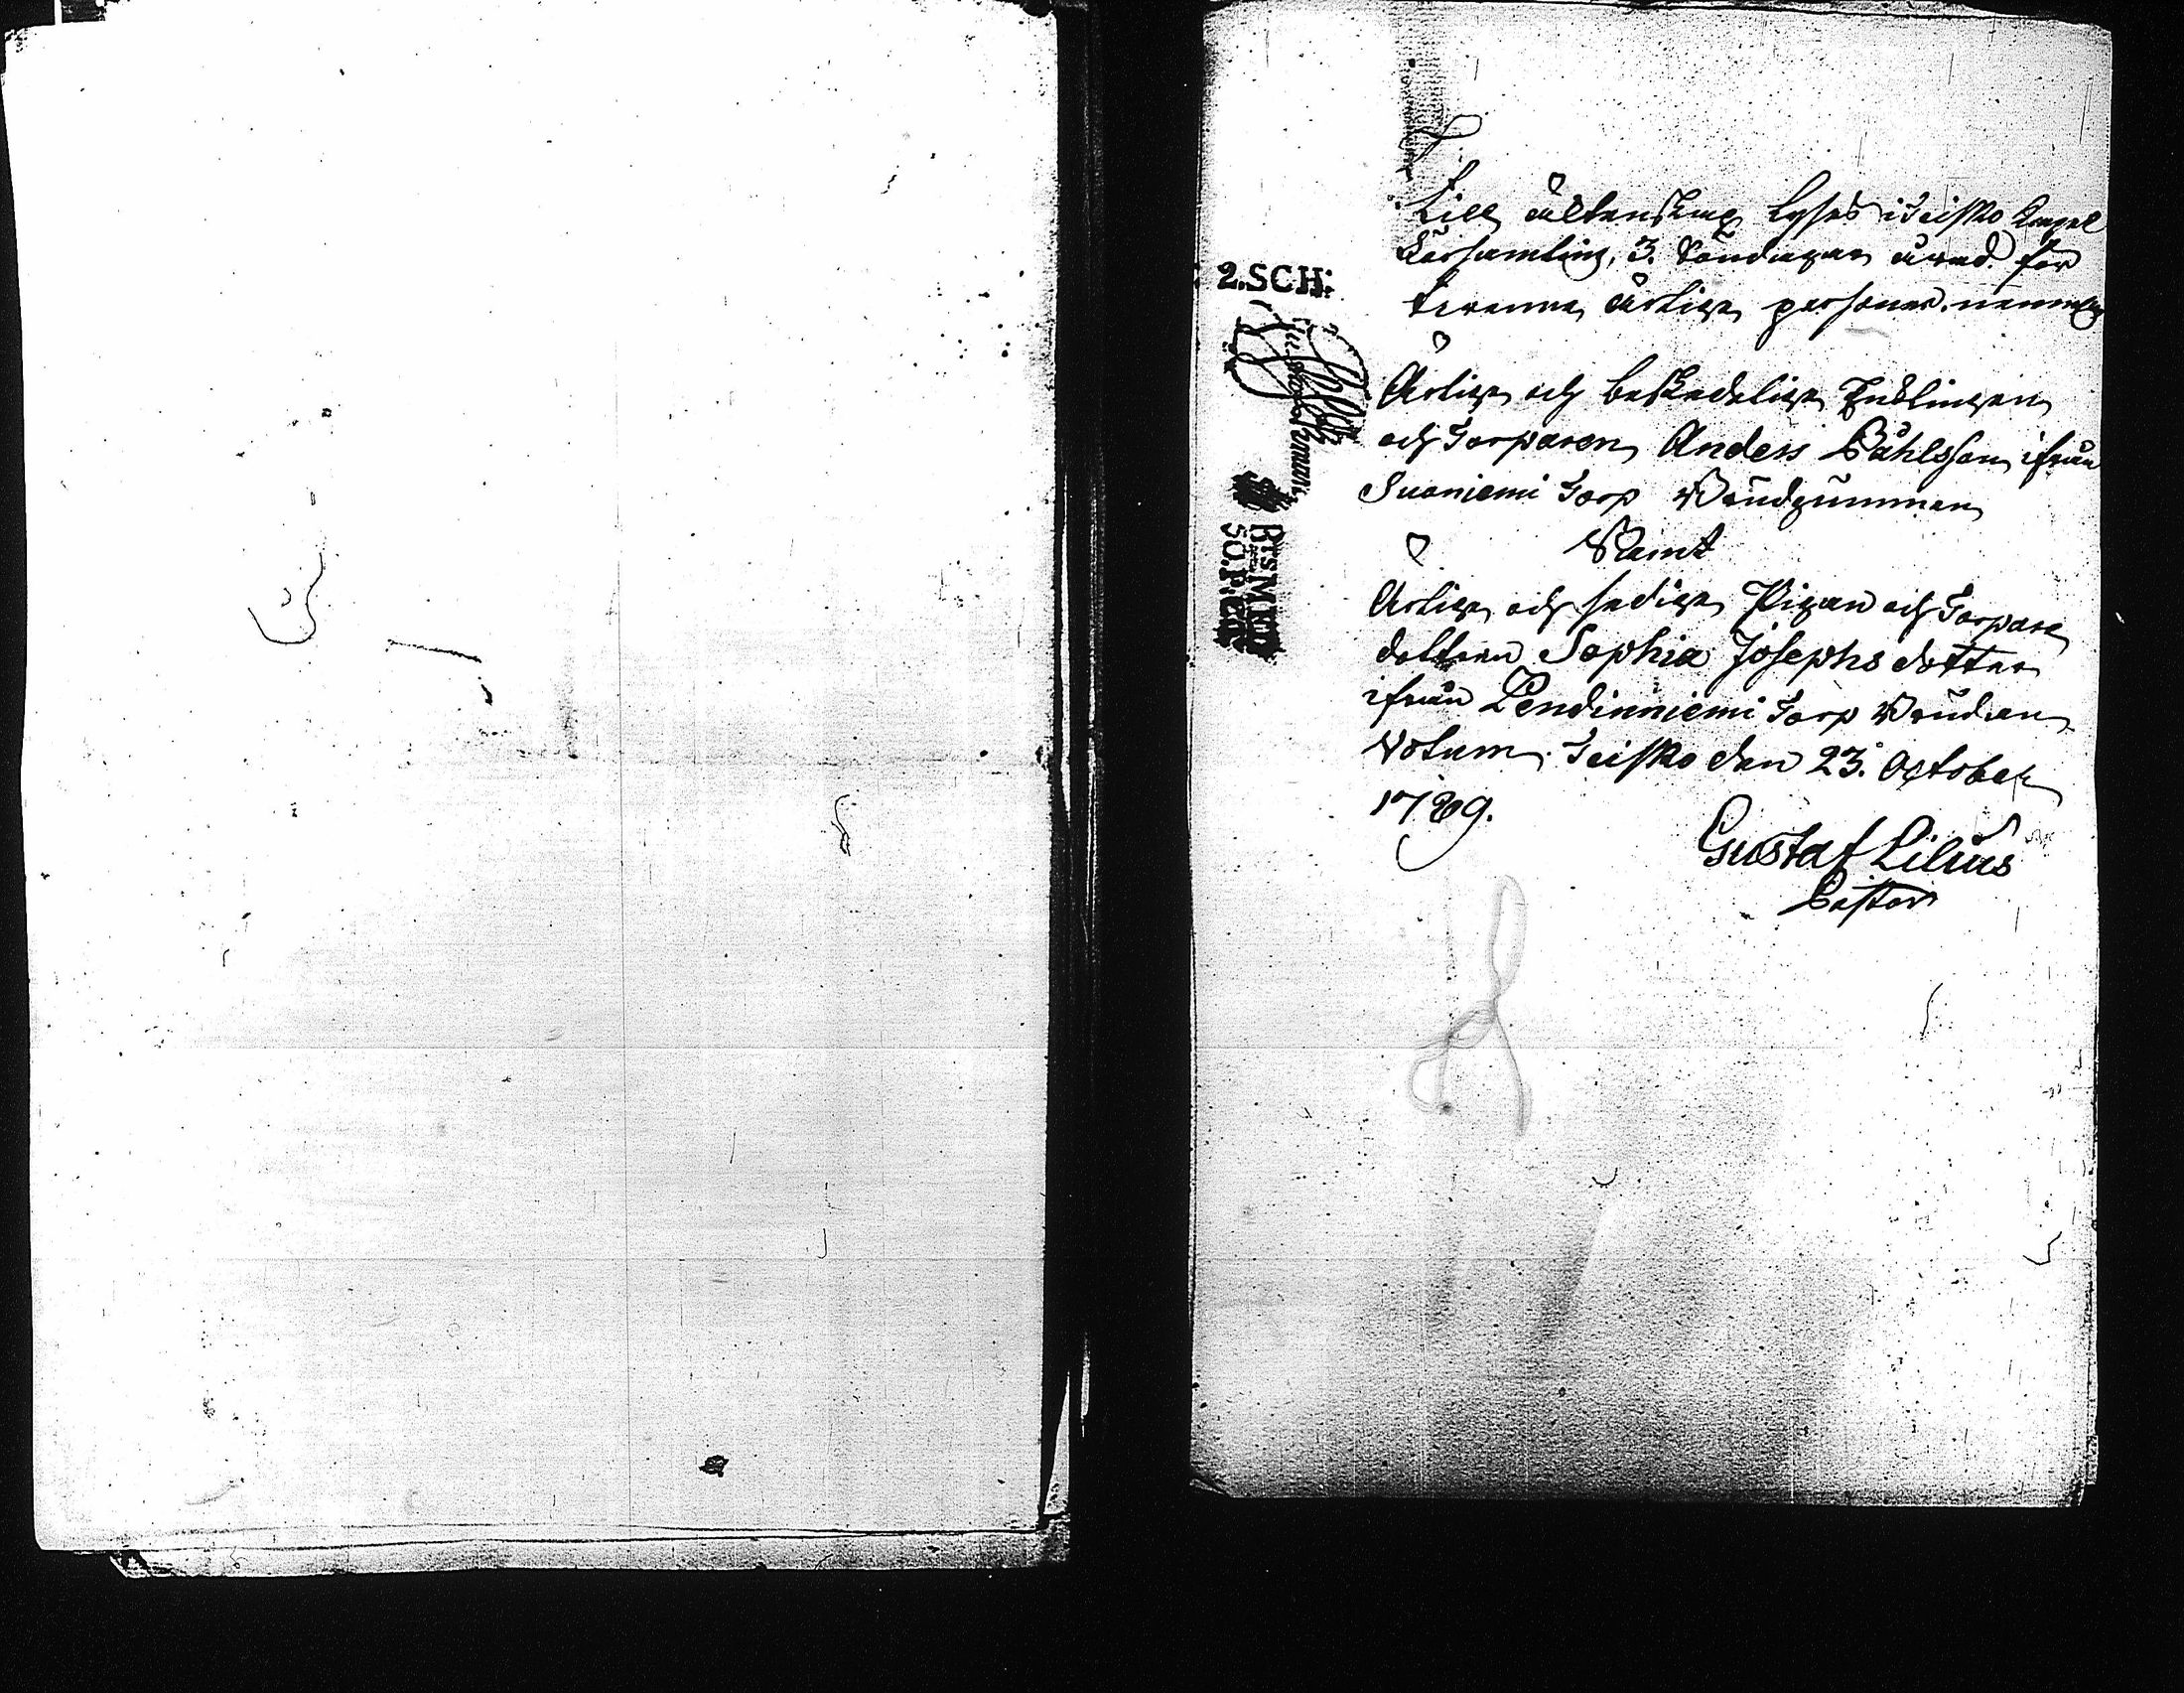 Till ächtenskap lyses i Teisko Capel
Församling, 3. Söndagar å rad. för
trenne ärlige personer. nemlig
Ärlige och beskedelige Ynglingen
och Torparen Anders Påhlsson ifrån
Suoniemi Torp Brudgumman
Samt
Ärlige och sedige Pigan och Torpare
dottren Sophia Josephs dotter
ifrån Pendinniemi Torp Bruden
Votum. Teisko den 23. October
1789.
Gustaf Lilius
Pastor
2.SCH: